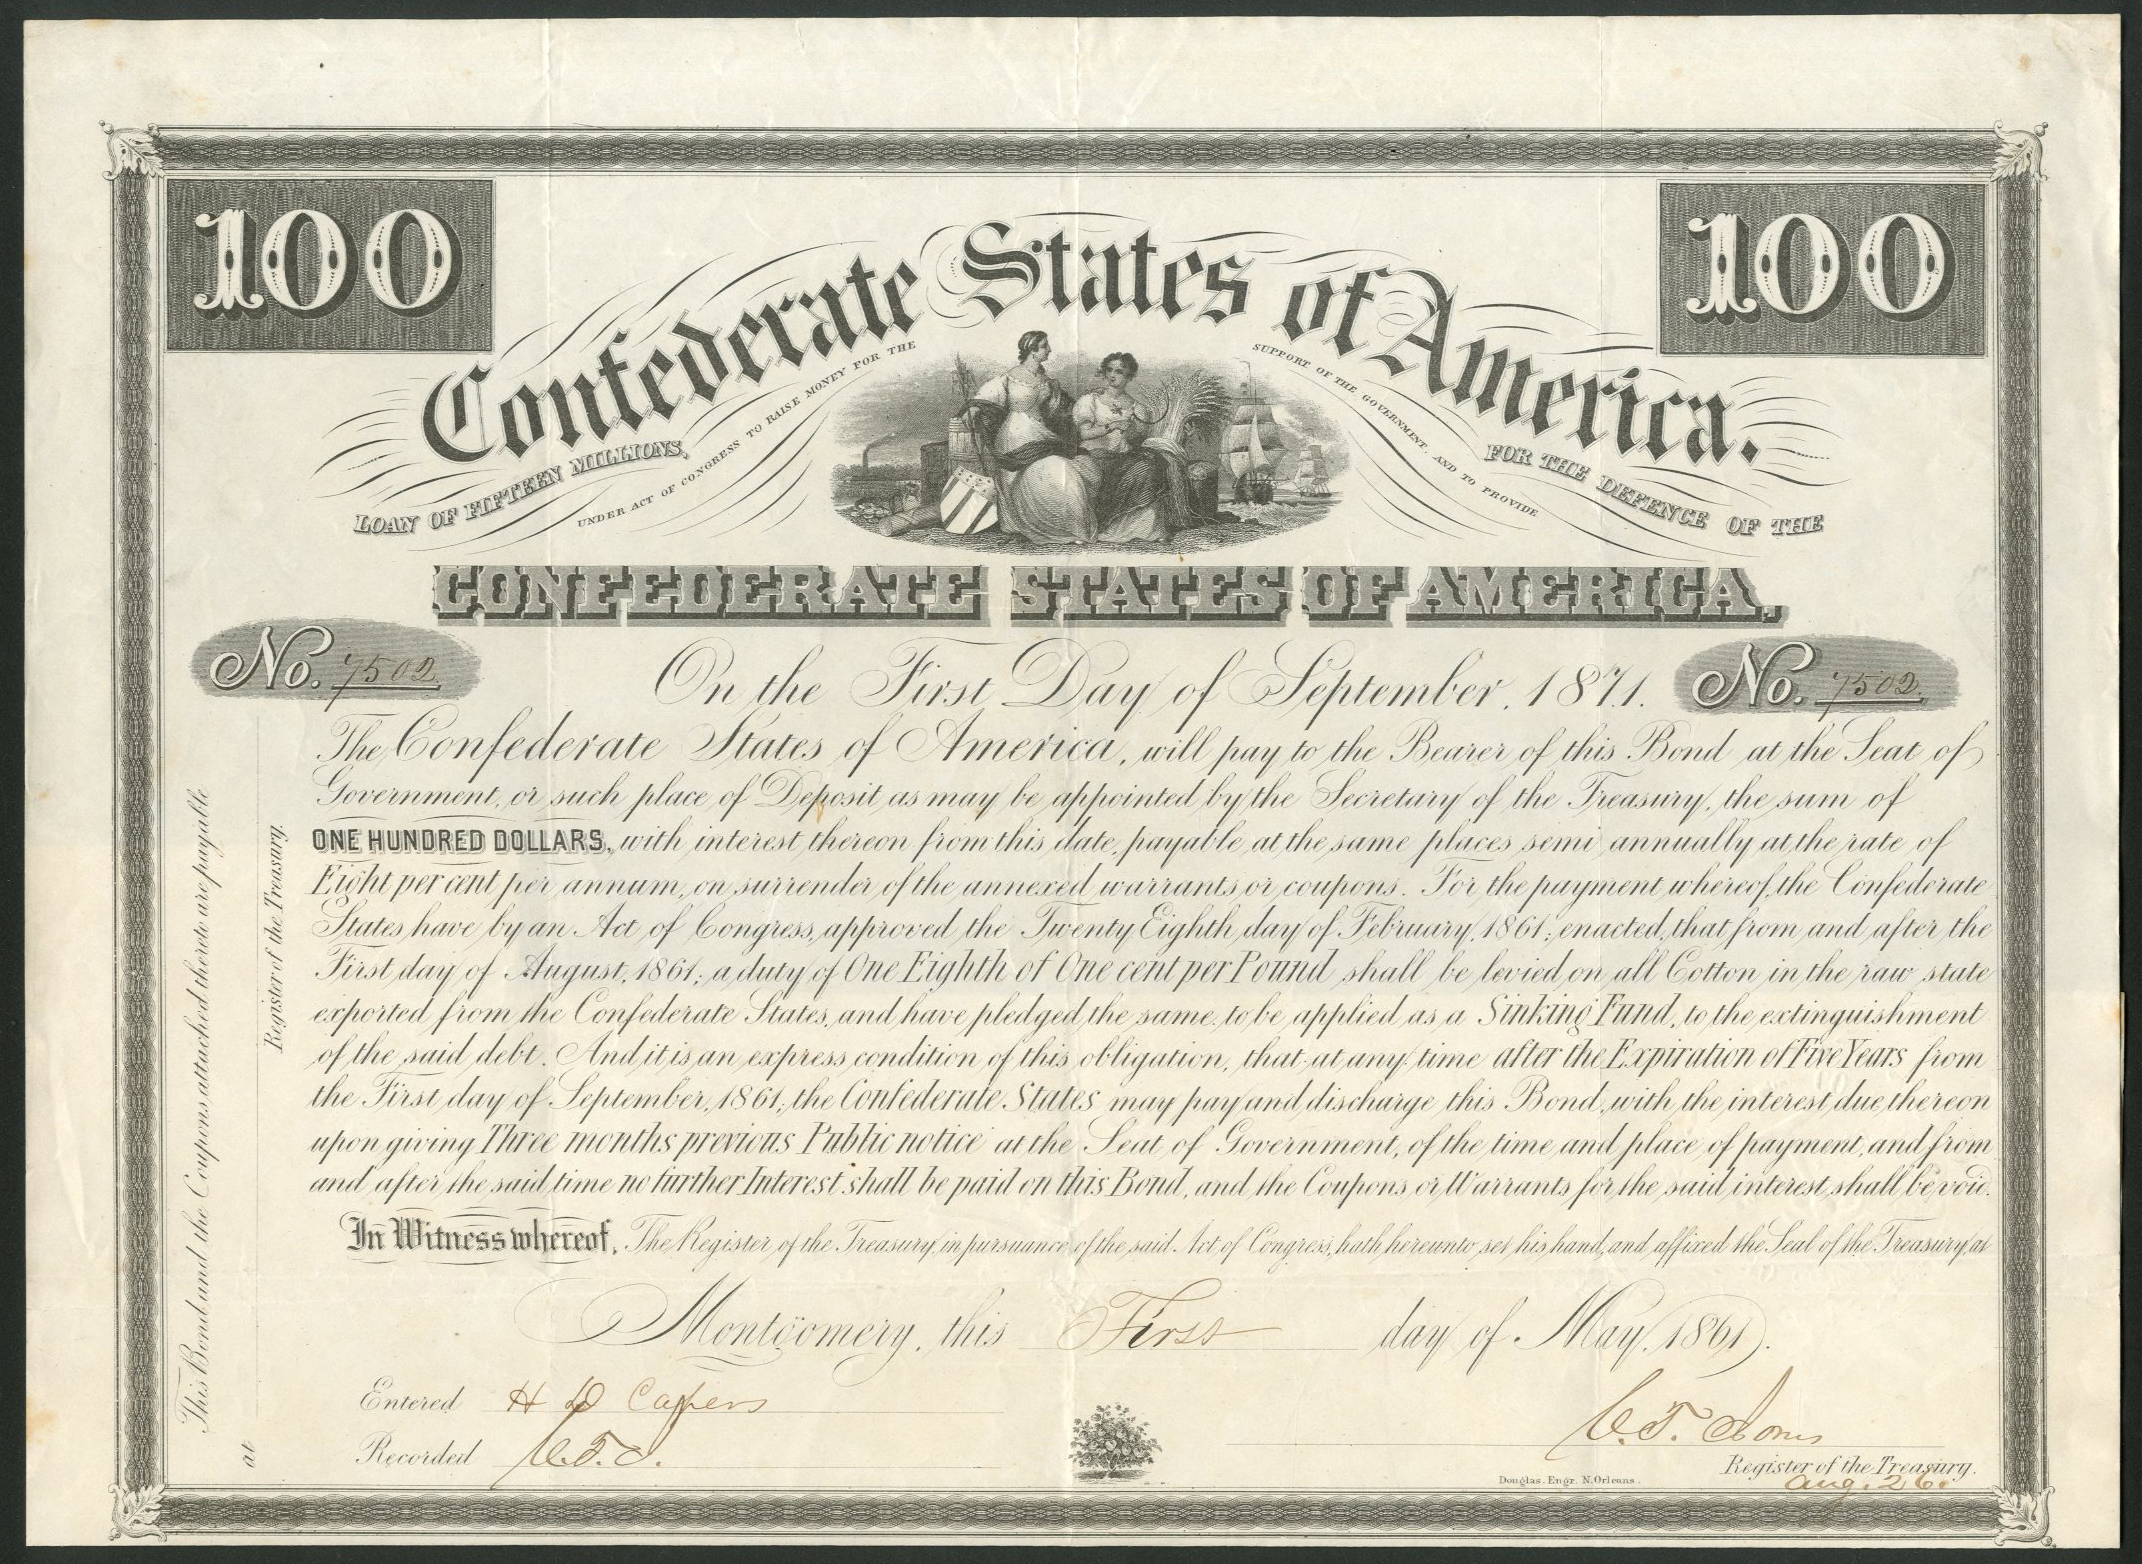 100
100
Confederate States of America.
LOAN OF FIFTEEN MILLIONS,
UNDER ACT OF CONGRESS TO RAISE MONEY FOR THE
SUPPORT OF THE GOVERNMENT, AND TO PROVIDE
FOR THE DEFENCE OF THE
CONFEDERATE STATES OF AMERICA,
No. 7502
On the First Day of September, 1871.
No. 7502.
The Confederate States of America, will pay to the Bearer of this Bond at the Seat of
Government, or such place of Deposit as may be appointed by the Secretary of the Treasury, the sum of
ONE HUNDRED DOLLARS, with interest thereon from this date, payable at the same places semi annually at the rate of
Eight per cent per annum, on surrender of the annexed warrants or coupons. For the payment whereof, the Confederate
States have by an Act of Congress, approved the Twenty Eighth day of February, 1861; enacted, that from and after the
First day of August, 1861; a duty of One Eighth of One cent per Pound shall be levied on all Cotton in the raw state
exported from the Confederate States, and have pledged the same, to be applied as a Sinking Fund, to the extinguishment
of the said debt. And it is an express condition of this obligation, that at any time after the Expiration of Five Years from
the First day of September, 1861; the Confederate States may pay and discharge this Bond, with the interest due thereon
upon giving Three months previous Public notice at the Seat of Government, of the time and place of payment, and from
and after the said time no further Interest shall be paid on this Bond, and the Coupons or Warrants for the said interest, shall be void.
In Witness whereof, The Register of the Treasury, in pursuance of the said Act of Congress, hath hereunto set his hand, and affixed the Seal of the Treasury, at
Montgomery, this First day of May, 1861.
Entered H D Capers
Recorded C.T.J.
C. T. Jones
Register of the Treasury.
Aug. 26.
Douglas. Engr. N. Orleans.
This Bond and the Coupons attached thereto are payable
at
Register of the Treasury.